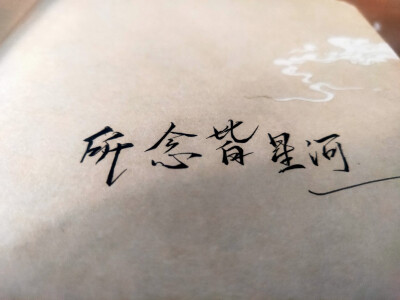 所念皆星河